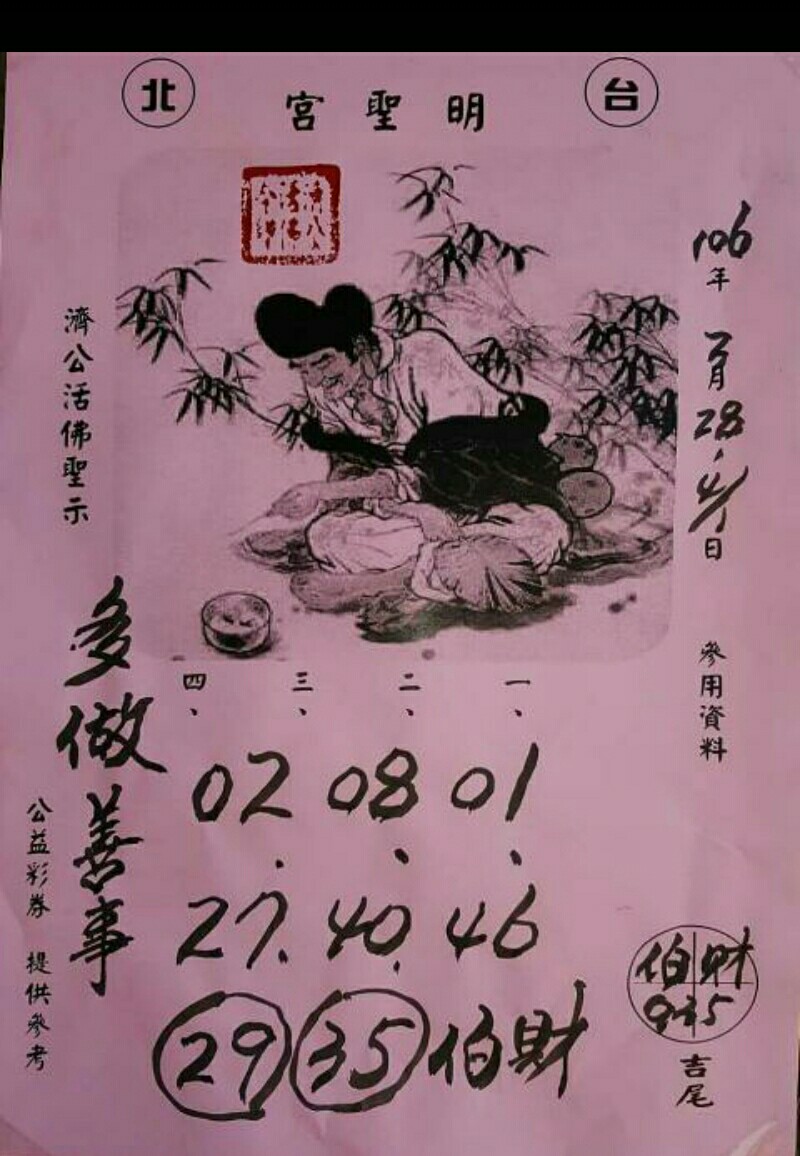 台北
明聖宮
106年2月28.4/1日
參用資料
一、
二、
三、
四、
01.46
08.40.
02.27.
財伯 35 29
財伯
9.35
吉尾
濟公活佛聖示
多做善事
公益彩券 提供參考